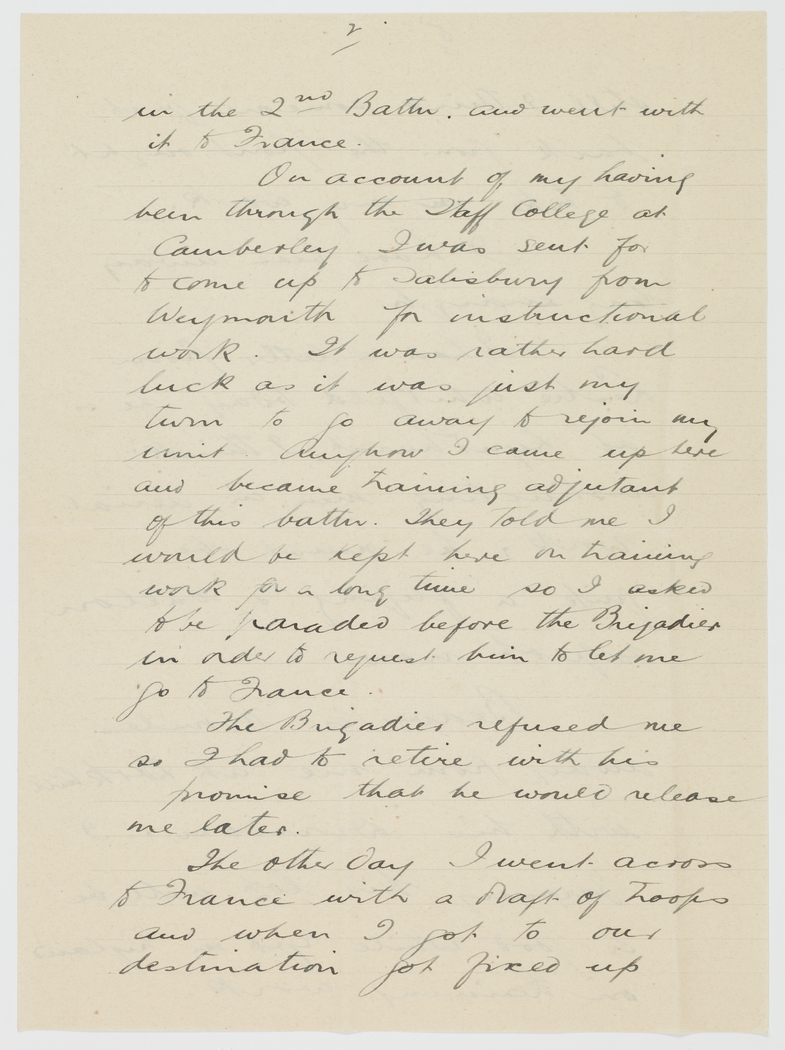 2
in the 2nd Battn. and went with
it to France.
On account of my having
been through the Staff College at
Camberley I was sent for
to come up to Salisbury from
Weymouth for instructional
work. It was rather hard
luck as it was just my
turn to go away to rejoin my
unit. Anyhow I came up here
and became training adjutant
of this battn. They told me I
would be kept here on training
work for a long time so I asked
to be paraded before the Brigadier
in order to request him to let me
go to France.
The Brigadier refused me
so I had to retire with his
promise that he would release
me later.
The other day I went across
to France with a draft of troops
and when I got to our
destination got fixed up